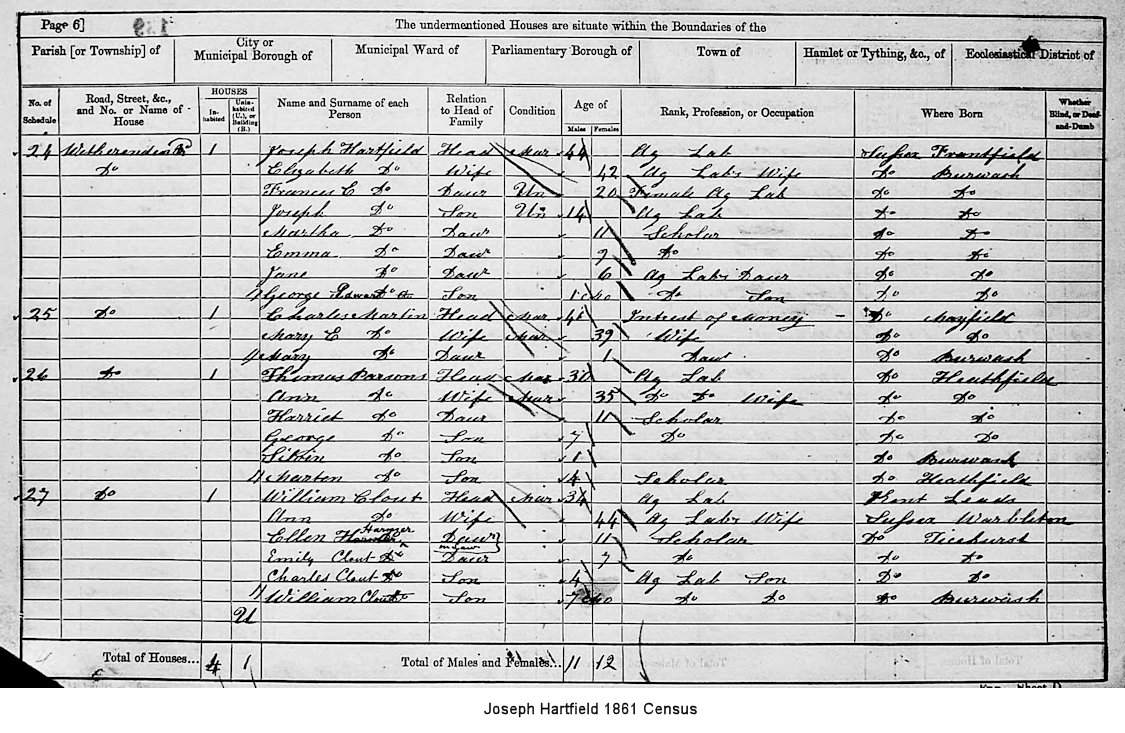 Page 6]
The undermentioned Houses are situate within the Boundaries of the
Parish [or Township] of
City or Municipal Borough of
Municipal Ward of
Parliamentary Borough of
Town of
Hamlet or Tything, &c., of
Ecclesiastical District of
No. of Schedule
Road, Street, &c., and No. or Name of House
HOUSES
Inhabited
Uninhabited (U.), or Building (B.)
Name and Surname of each Person
Relation to Head of Family
Condition
Age of
Males
Females
Rank, Profession, or Occupation
Where Born
Whether Blind, or Deaf-and-Dumb
24 1 Joseph Hartfield Head Mar 44 Ag Lab Sussex Frantfield
Do Elizabeth Do Wife 42 Ag Labs Wife Do Burwash
Frances E Do Daur Un 20 Female Ag Lab Do Do
Joseph Do Son Un 14 Ag Lab Do Do
Martha Do Daur 11 Scholar Do Do
Emma Do Daur 9 Do Do Do
Jane Do Daur 6 Ag Labs Daur Do Do
George Edward Do Son 1 Do Son Do Do
25 Do 1 Charles Martin Head Mar Intrest of Money Do Mayfield
Mary E Do Wife Mar 39 Wife Do Do
Mary Do Daur 1 Daur Do Burwash
26 Do 1 Thomas Parsons Head Mar 30 Ag Lab Do Heathfield
Ann Do Wife Mar 35 Do Do Wife Do Do
Harriet Do Daur 11 Scholar Do Do
George Do Son 7 Do Do Do
Do Son 1 Do Burwash
Marten Do Son 4 Scholar Do Heathfield
27 Do 1 William Clout Head Mar 34 Ag Lab Kent Leads
Ann Do Wife 44 Ag Labs Wife Sussex Warbleton
Ellen Daur in Law 11 Scholar Do Ticehurst
Emily Clout Do Daur 7 Do Do Do
Charles Clout Do Son 4 Ag Lab Son Do Do
William Clout Do Son 7 Do Do Do Burwash
U
Total of Houses... 4 1
Total of Males and Females... 11 12
Joseph Hartfield 1861 Census